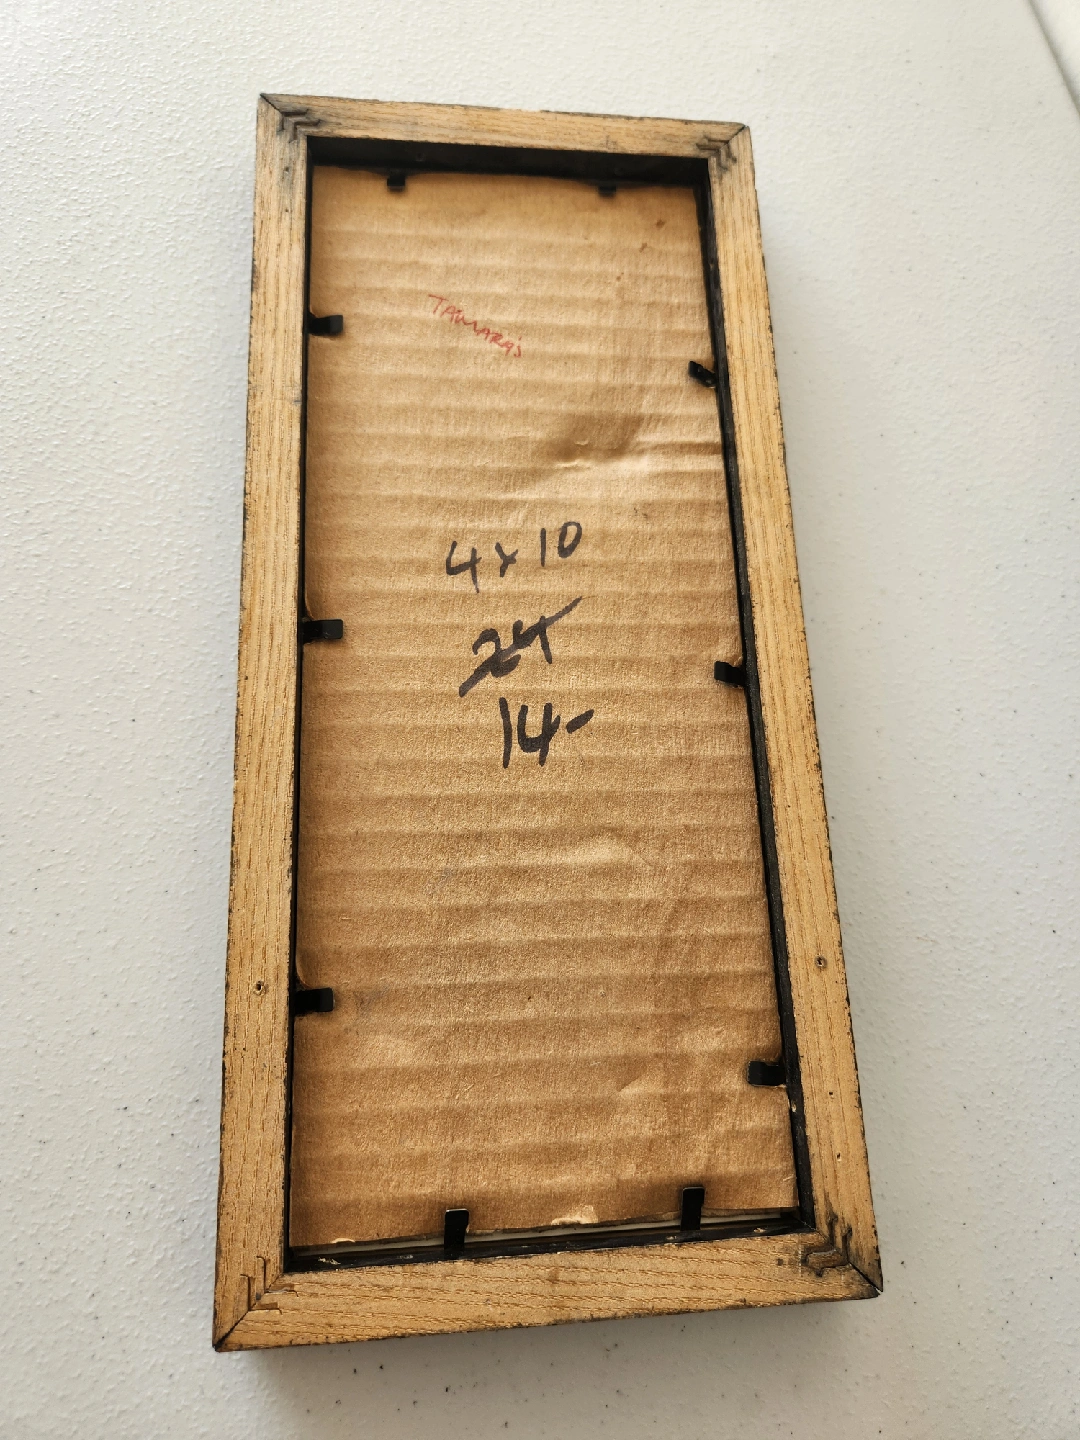 TAMARA'S
4x10
24
14-